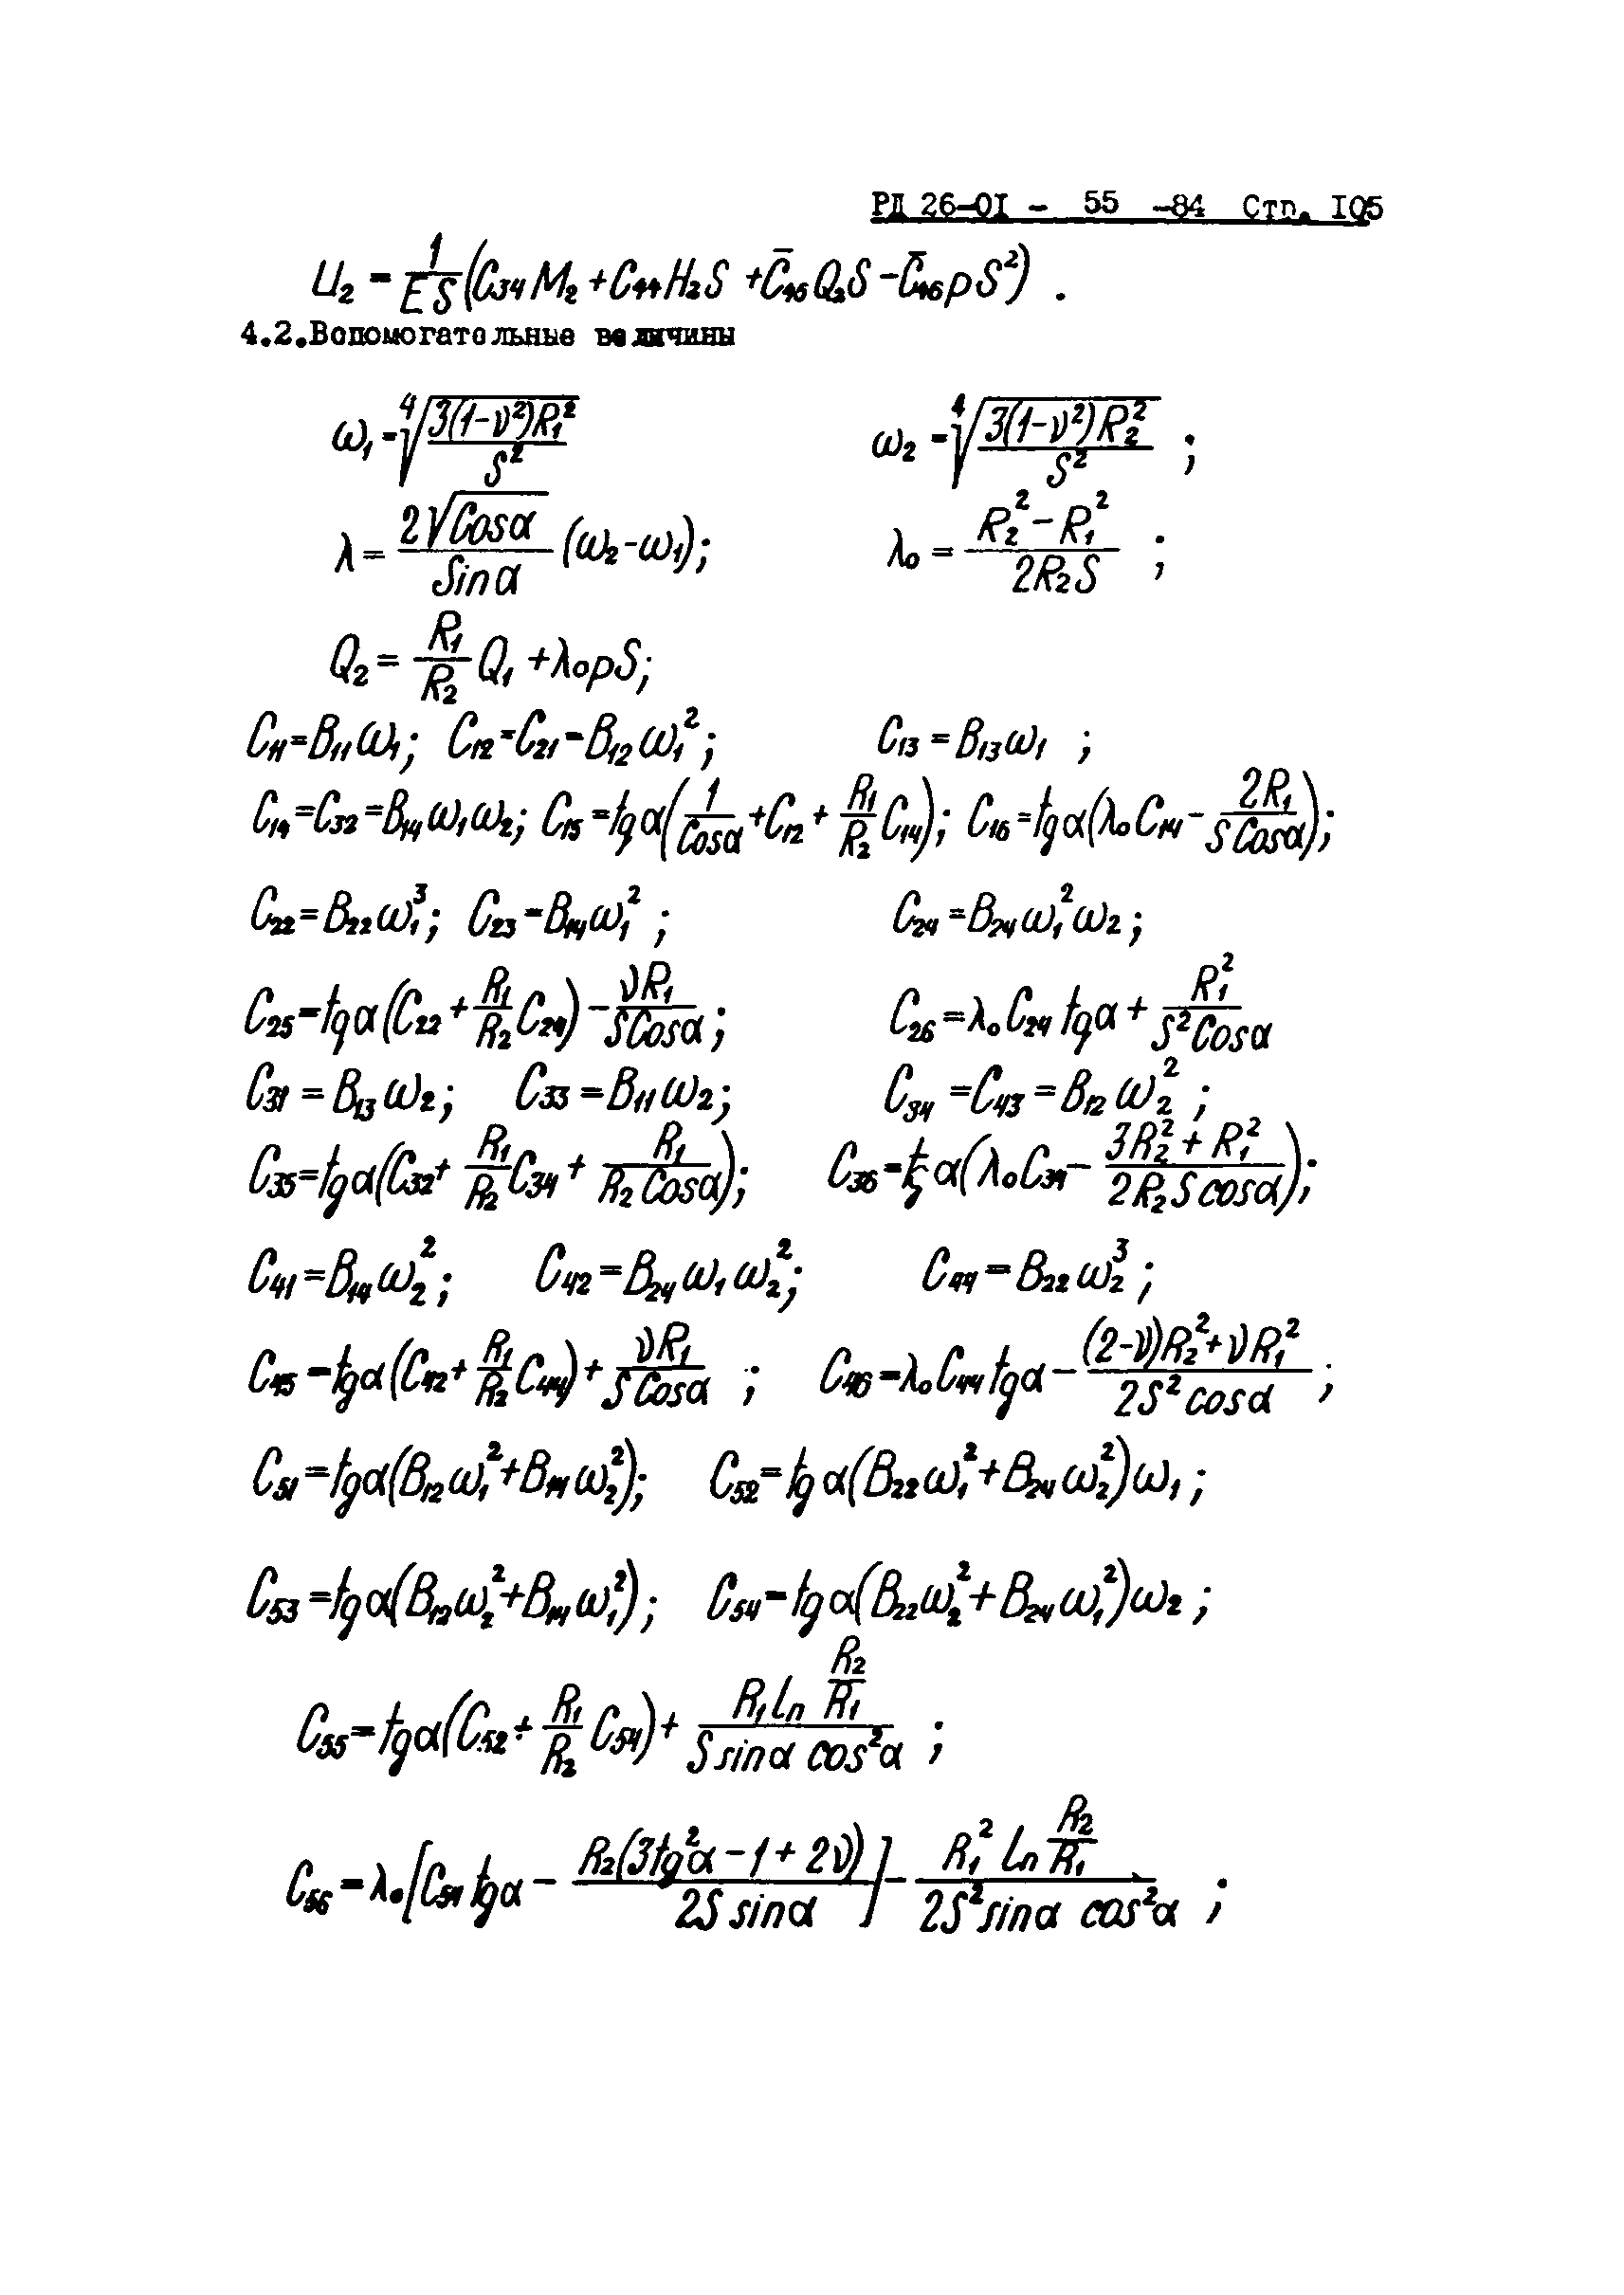 РД 26-01 - 55 -84 Стр. 105
U₂ = 1/(ES) (C₃₄M₂ + C₄₄H₂S + C̄₄₅Q₂S - C̄₄₆pS²) .
4.2.Вспомогательные величины
ω₁ = ⁴√(3(1-ν²)R₁²/S²) ω₂ = ⁴√(3(1-ν²)R₂²/S²) ;
λ = (2√(Cosα)/Sinα) (ω₂-ω₁); λ₀ = (R₂² - R₁²)/(2R₂S) ;
Q₂ = (R₁/R₂) Q₁ + λ₀pS;
C₁₁ = B₁₁ω₁; C₁₂ = C₂₁ = B₁₂ω₁²; C₁₃ = B₁₃ω₁ ;
C₁₄ = C₃₂ = B₁₄ω₁ω₂; C₁₅ = tgα(1/Cosα + C₁₂ + (R₁/R₂)C₁₄); C₁₆ = tgα(λ₀C₁₄ - 2R₁/(S Cosα));
C₂₂ = B₂₂ω₁³; C₂₃ = B₁₄ω₁² ; C₂₄ = B₂₄ω₁²ω₂;
C₂₅ = tgα(C₂₂ + (R₁/R₂)C₂₄) - νR₁/(S Cosα); C₂₆ = λ₀C₂₄ tgα + R₁²/(S² Cosα)
C₃₁ = B₁₃ω₂; C₃₃ = B₁₁ω₂; C₃₄ = C₄₃ = B₁₂ω₂² ;
C₃₅ = tgα(C₃₂ + (R₁/R₂)C₃₄ + R₁/(R₂ Cosα)); C₃₆ = tgα(λ₀C₃₄ - (3R₂² + R₁²)/(2R₂S cosα));
C₄₁ = B₁₄ω₂²; C₄₂ = B₂₄ω₁ω₂²; C₄₄ = B₂₂ω₂³ ;
C₄₅ = tgα(C₄₂ + (R₁/R₂)C₄₄) + νR₁/(S Cosα) ; C₄₆ = λ₀C₄₄ tgα - ((2-ν)R₂² + νR₁²)/(2S² cosα) ;
C₅₁ = tgα(B₁₂ω₁² + B₁₄ω₂²); C₅₂ = tgα(B₂₂ω₁² + B₂₄ω₂²)ω₁ ;
C₅₃ = tgα(B₁₂ω₂² + B₁₄ω₁²); C₅₄ = tgα(B₂₂ω₂² + B₂₄ω₁²)ω₂ ;
C₅₅ = tgα(C₅₂ + (R₁/R₂)C₅₄) + (R₁ ln (R₂/R₁))/(S sinα cos²α) ;
C₅₆ = λ₀[C₅₄ tgα - R₂(3tg²α - 1 + 2ν)/(2S sinα)] - (R₁² ln (R₂/R₁))/(2S² sinα cos²α) ;